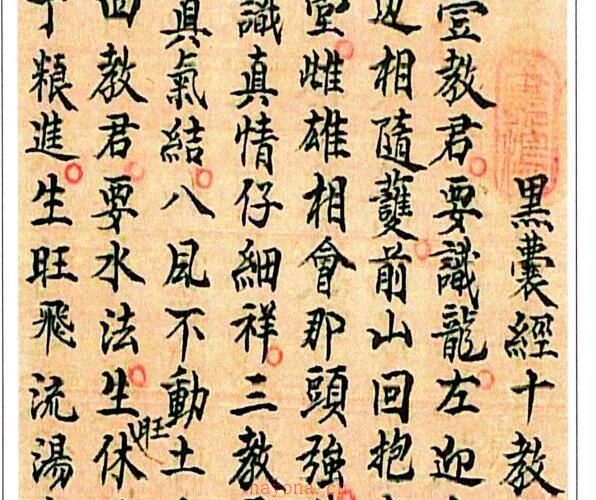 黑囊經十教
壹教君要識龍左迎
邊相隨護前山回抱
堂雌雄相會那頭強
識真情仔細祥三教
真氣結八風不動土
四教君要水法生旺休
丁粮進生旺飛流湯
nayona.cn